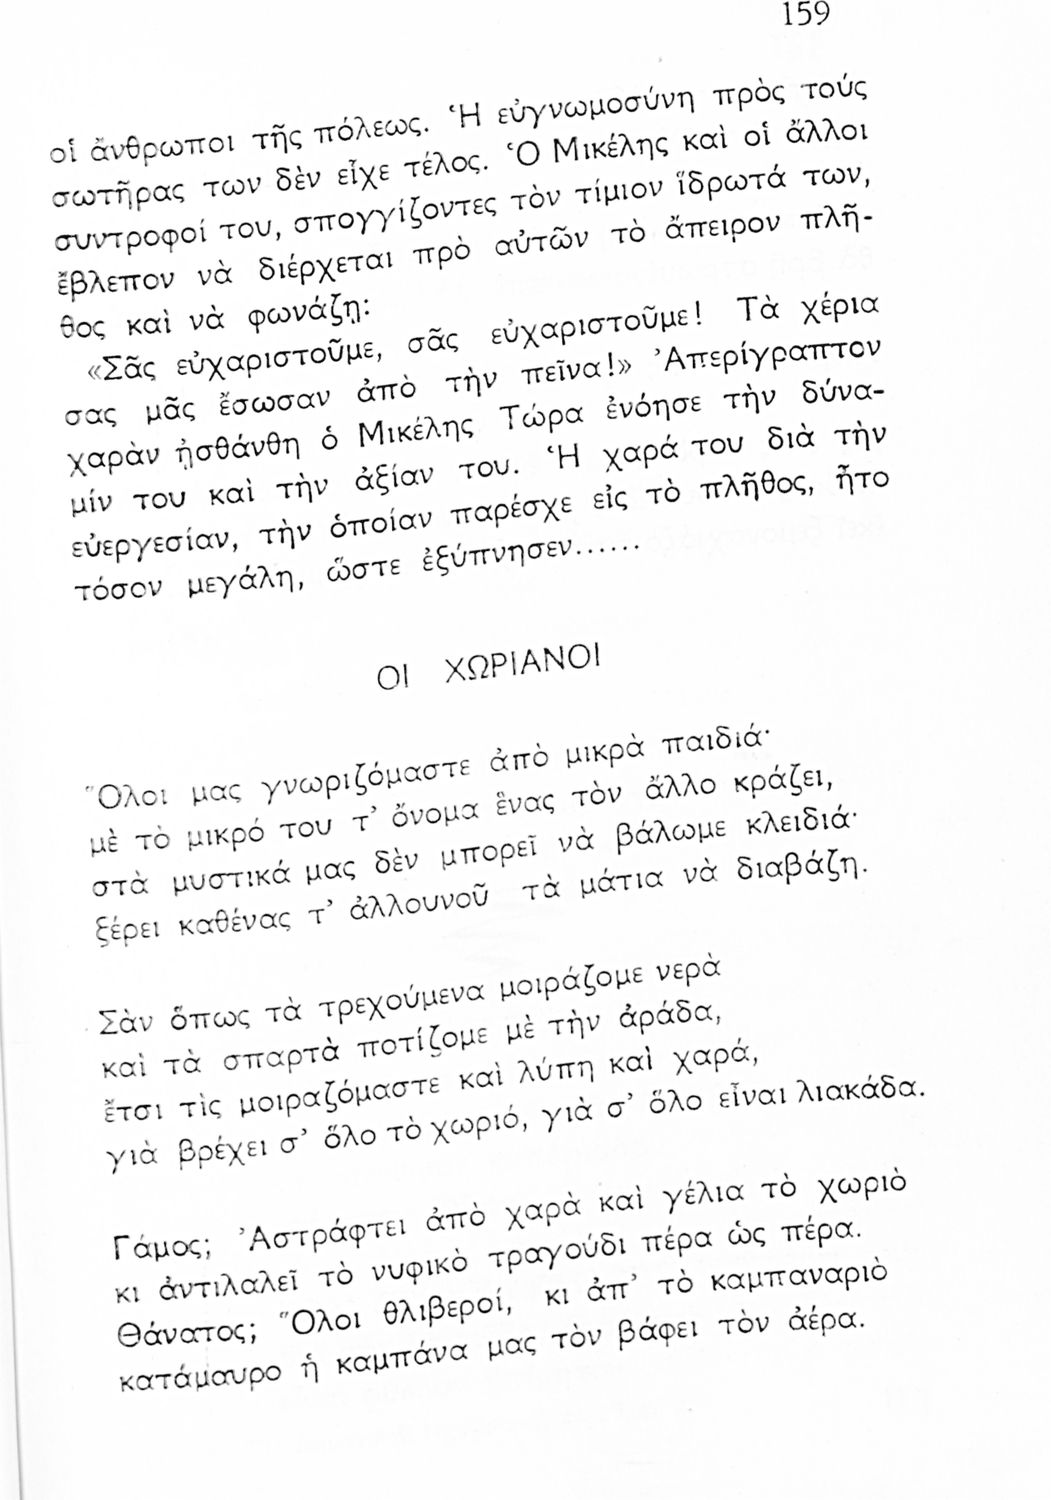 159
οἱ ἄνθρωποι τῆς πόλεως. Ἡ εὐγνωμοσύνη πρὸς τούς
σωτῆρας των δὲν εἶχε τέλος. Ὁ Μικέλης καὶ οἱ ἄλλοι
συντροφοί του, σπογγίζοντες τὸν τίμιον ἵδρωτά των,
ἔβλεπον νὰ διέρχεται πρὸ αὐτῶν τὸ ἄπειρον πλῆ-
θος καὶ νὰ φωνάζῃ:
«Σᾶς εὐχαριστοῦμε, σᾶς εὐχαριστοῦμε! Τὰ χέρια
σας μᾶς ἔσωσαν ἀπὸ τὴν πεῖνα!» Ἀπερίγραπτον
χαρὰν ᾐσθάνθη ὁ Μικέλης Τώρα ἐνόησε τὴν δύνα-
μίν του καὶ τὴν ἀξίαν του. Ἡ χαρά του διὰ τὴν
εὐεργεσίαν, τὴν ὁποίαν παρέσχε εἰς τὸ πλῆθος, ἦτο
τόσον μεγάλη, ὥστε ἐξύπνησεν......
ΟΙ ΧΩΡΙΑΝΟΙ
Ὅλοι μας γνωριζόμαστε ἀπὸ μικρὰ παιδιά·
μὲ τὸ μικρό του τ’ ὄνομα ἕνας τὸν ἄλλο κράζει,
στὰ μυστικά μας δὲν μπορεῖ νὰ βάλωμε κλειδιά·
ξέρει καθένας τ’ ἀλλουνοῦ τὰ μάτια νὰ διαβάζη.
Σὰν ὅπως τὰ τρεχούμενα μοιράζομε νερὰ
καὶ τὰ σπαρτὰ ποτίζομε μὲ τὴν ἀράδα,
ἔτσι τὶς μοιραζόμαστε καὶ λύπη καὶ χαρά,
γιὰ βρέχει σ’ ὅλο τὸ χωριό, γιὰ σ’ ὅλο εἶναι λιακάδα.
Γάμος; Ἀστράφτει ἀπὸ χαρὰ καὶ γέλια τὸ χωριὸ
κι ἀντιλαλεῖ τὸ νυφικὸ τραγούδι πέρα ὡς πέρα.
Θάνατος; Ὅλοι θλιβεροί, κι ἀπ’ τὸ καμπαναριὸ
κατάμαυρο ἡ καμπάνα μας τὸν βάφει τὸν ἀέρα.